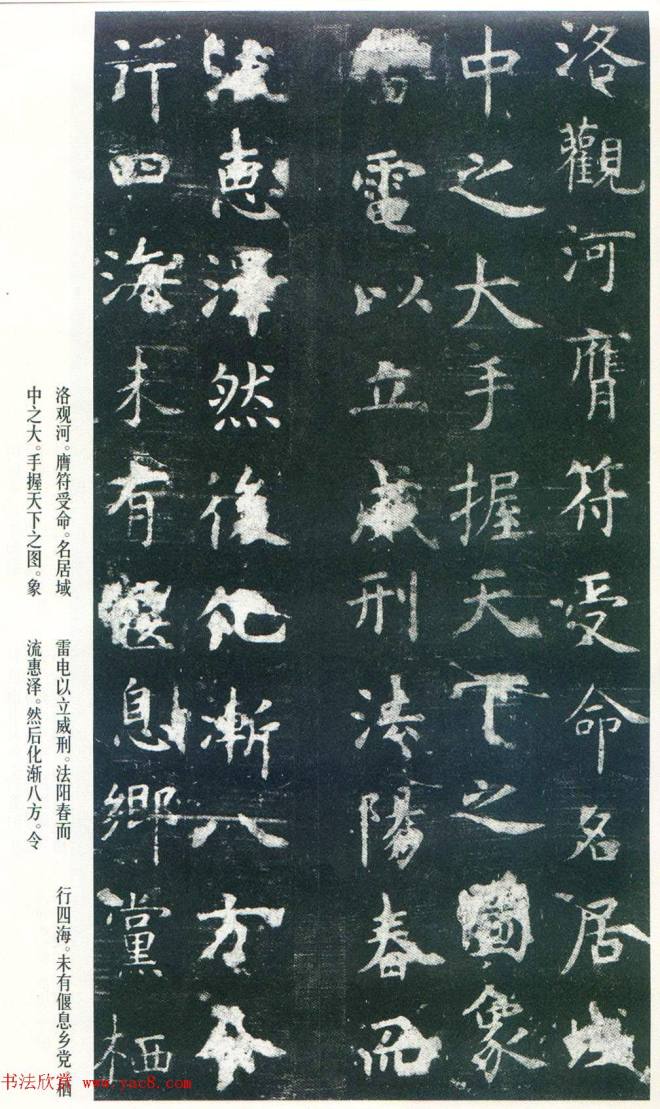 洛觀河膺符受命名居域
中之大手握天下之圖象
雷電以立威刑法陽春而
流惠澤然後化漸八方令
行四海未有偃息鄉黨栖
洛观河。膺符受命。名居域
中之大。手握天下之图。象
雷电以立威刑。法阳春而
流惠泽。然后化渐八方。令
行四海。未有偃息乡党栖
书法欣赏 www.yac8.com